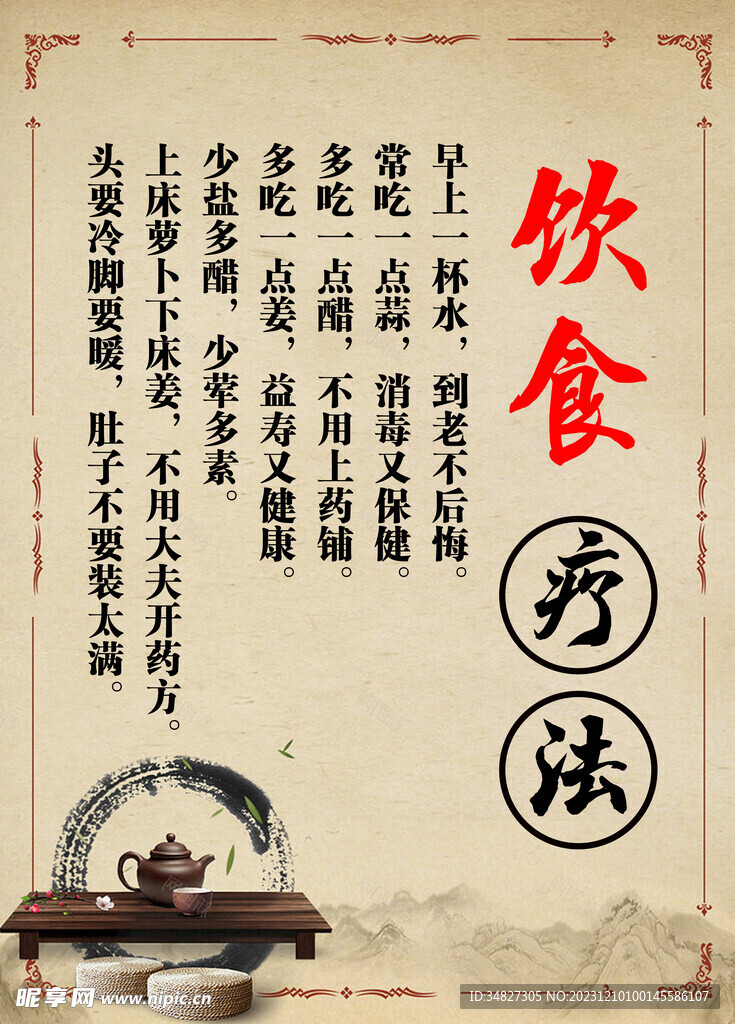 饮食疗法
早上一杯水，到老不后悔。
常吃一点蒜，消毒又保健。
多吃一点醋，不用上药铺。
多吃一点姜，益寿又健康。
少盐多醋，少荤多素。
上床萝卜下床姜，不用大夫开药方。
头要冷脚要暖，肚子不要装太满。
昵享网 www.nipic.cn
ID:34827305 NO:20231210100145586107